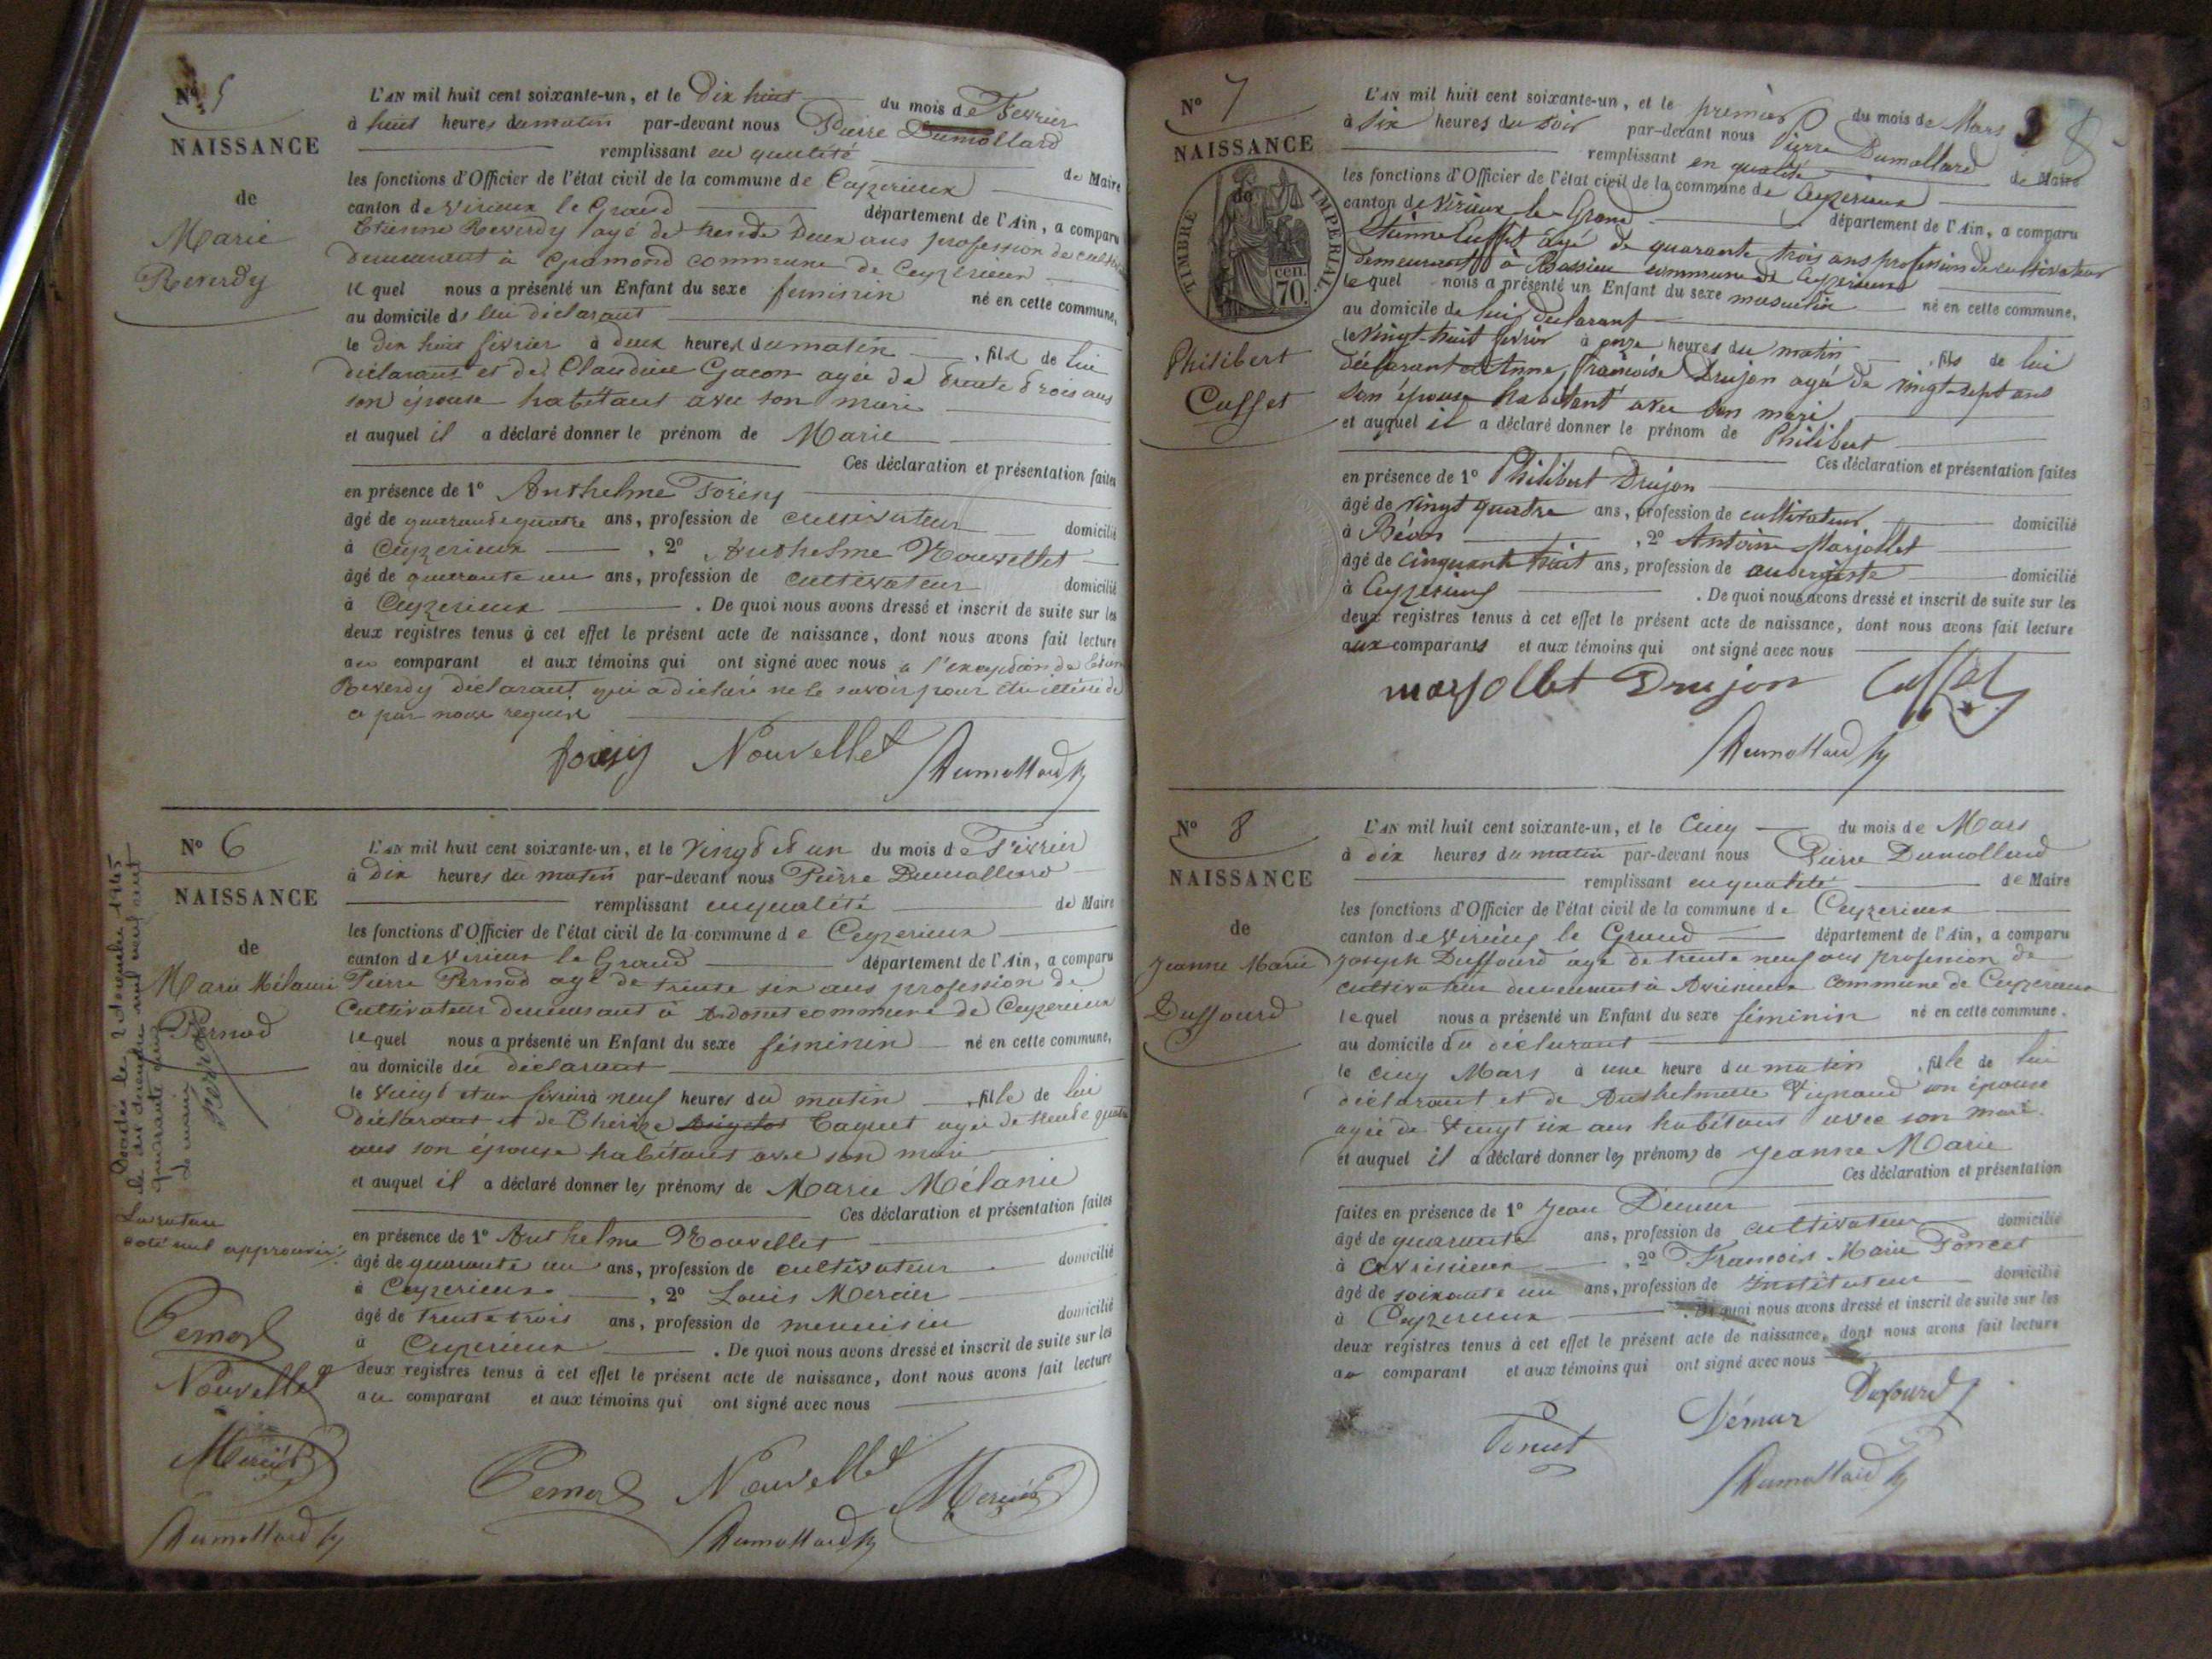 Nº 5
NAISSANCE
de
Marie
Reverdy
L'AN mil huit cent soixante-un, et le Dix huit du mois de Fevrier
à huit heures du matin par-devant nous Pierre Dumollard
remplissant en qualité de Maire
les fonctions d'Officier de l'état civil de la commune de Ceyzerieux
canton de Virieux le Grand département de l'Ain, a comparu
Etienne Reverdy agé de trente Deux ans profession de
demeurant à commune de Ceyzerieux
le quel nous a présenté un Enfant du sexe feminin né en cette commune,
au domicile de lui déclarant
le dix huit fevrier à deux heures du matin , fille de lui
déclarant et de Claudine Gacon agée de trente trois ans
son épouse habitant avec son mari
et auquel il a déclaré donner le prénom de Marie
Ces déclaration et présentation faites
en présence de 1º Anthelme
âgé de quarante quatre ans, profession de cultivateur domicilié
à Ceyzerieux , 2º Anthelme Nouvellet
âgé de quarante un ans, profession de cultivateur domicilié
à Ceyzerieux . De quoi nous avons dressé et inscrit de suite sur les
deux registres tenus à cet effet le présent acte de naissance, dont nous avons fait lecture
au comparant et aux témoins qui ont signé avec nous à l'exception de
Reverdy déclarant qui a déclaré ne le savoir pour être illétéré de
ce par nous requis
Nouvellet Dumollard
Nº 6
NAISSANCE
de
Marie Mélanie
Pernod
L'AN mil huit cent soixante-un, et le Vingt et un du mois de Février
à dix heures du matin par-devant nous Pierre Dumollard
remplissant en qualité de Maire
les fonctions d'Officier de l'état civil de la commune de Ceyzerieux
canton de Virieux le Grand département de l'Ain, a comparu
Pierre Pernod agé de trente six ans profession de
Cultivateur demeurant à Ardosset commune de Ceyzerieux
lequel nous a présenté un Enfant du sexe féminin né en cette commune,
au domicile du déclarant
le vingt et un fevrier à neuf heures du matin , fille de lui
déclarant et de Thérèze Caquet agée de trente quatre
ans son épouse habitant avec son mari
et auquel il a déclaré donner les prénoms de Marie Mélanie
Ces déclaration et présentation faites
en présence de 1º Anthelme Nouvellet
âgé de quarante un ans, profession de cultivateur domicilié
à Ceyzerieux , 2º Louis Mercier
âgé de trente trois ans, profession de menuisier domicilié
à Ceyzerieux . De quoi nous avons dressé et inscrit de suite sur les
deux registres tenus à cet effet le présent acte de naissance, dont nous avons fait lecture
au comparant et aux témoins qui ont signé avec nous
Décédée le 2 décembre 1945
le dix décembre mil neuf cent
quarante cinq
Le maire
La rature
mot nul approuvée
Pernod
Nouvellet
Mercier
Dumollard
Pernod Nouvellet Mercier
Dumollard
8
Nº 7
NAISSANCE
de
TIMBRE IMPERIAL
70 cen.
Philibert
Cusset
L'AN mil huit cent soixante-un, et le premier du mois de Mars
à six heures du soir par-devant nous Pierre Dumollard
remplissant en qualité de Maire
les fonctions d'Officier de l'état civil de la commune de Ceyzerieux
canton de Virieux le Grand département de l'Ain, a comparu
Etienne Cusset âgé de quarante trois ans profession de cultivateur
demeurant à Bassieu commune de Ceyzerieux
lequel nous a présenté un Enfant du sexe masculin né en cette commune,
au domicile de lui déclarant
le Vingt-huit fevrier à onze heures du matin , fils de lui
déclarant et Anne Françoise Drujon agée de vingt-sept ans
son épouse habitant avec son mari
et auquel il a déclaré donner le prénom de Philibert
Ces déclaration et présentation faites
en présence de 1º Philibert Drujon
âgé de vingt quatre ans, profession de cultivateur domicilié
à Béon , 2º Antoine Marjollet
âgé de cinquante huit ans, profession de aubergiste domicilié
à Ceyzerieux . De quoi nous avons dressé et inscrit de suite sur les
deux registres tenus à cet effet le présent acte de naissance, dont nous avons fait lecture
aux comparants et aux témoins qui ont signé avec nous
marjollet Drujon Cusset
Dumollard
Nº 8
NAISSANCE
de
Jeanne Marie
Duffourd
L'AN mil huit cent soixante-un, et le Cinq du mois de Mars
à dix heures du matin par-devant nous Pierre Dumollard
remplissant en qualité de Maire
les fonctions d'Officier de l'état civil de la commune de Ceyzerieux
canton de Virieux le Grand département de l'Ain, a comparu
Joseph Duffourd agé de trente neuf ans profession de
cultivateur demeurant à Avrissieux commune de Ceyzerieux
lequel nous a présenté un Enfant du sexe féminin né en cette commune.
au domicile du déclarant
le cinq Mars à une heure du matin , fille de lui
déclarant et de Anthelmette Vignand son épouse
agée de vingt six ans habitant avec son mari
et auquel il a déclaré donner les prénoms de Jeanne Marie
Ces déclaration et présentation
faites en présence de 1º Jean Démur
âgé de quarante ans, profession de cultivateur domicilié
à Avrissieux , 2º François Marie Poncet
âgé de soixante un ans, profession de Instituteur domicilié
à Ceyzerieux . De quoi nous avons dressé et inscrit de suite sur les
deux registres tenus à cet effet le présent acte de naissance, dont nous avons fait lecture
au comparant et aux témoins qui ont signé avec nous
Poncet Démur Dufourd
Dumollard